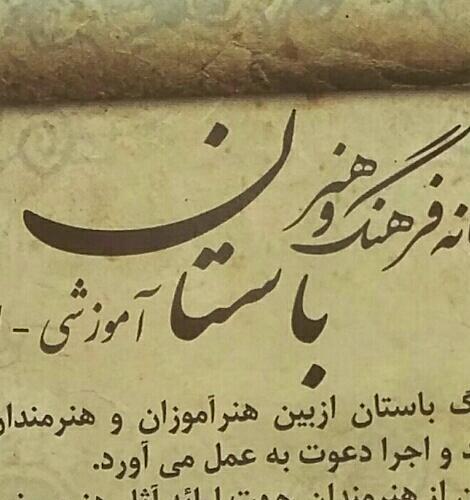 فرهنگ و هنر
باستان
آموزشی -
باستان ازبین هنرآموزان و هنرمندان
و اجرا دعوت به عمل می آورد.